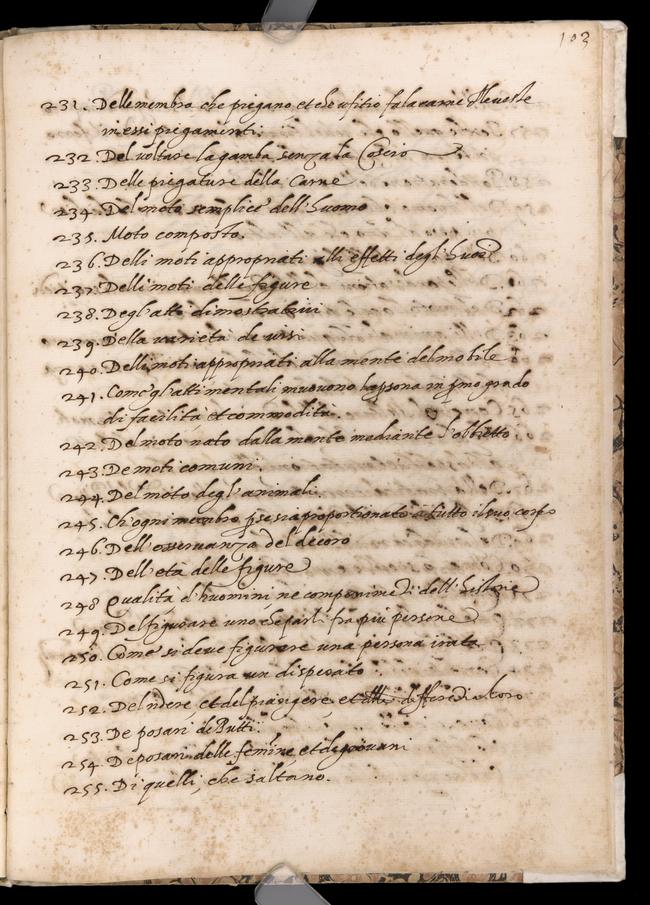 103
231. Delle membra che piegano et che ufitio fa la carne
in essi piegamenti.
232. Del voltare la gamba senza la Coscia
233. Delle piegature della Carne
234. Del moto semplice dell'huomo
235. Moto composto.
236. Delli moti appropriati alli effetti degl'
237. Delli moti delle figure
238. Degl'atti dimostrativi
239. Della varietà de visi
240. Delli moti appropriati alla mente del mobile
241. Come gl'atti mentali muovono la psona in pmo grado
di facilità et commodità.
242. Del moto nato dalla mente mediante l'obbietto
243. De moti comuni.
244. Del moto degl'animali.
245. Ch'ogni membro p se sia proportionato à tutto il suo corpo
246. Dell'osservanza del decoro
247. Dell'età delle figure
248 Qualità d'huomini ne componimeti dell'historie
249. Del figurare uno che parli fra più persone
250. Come si deve figurare una persona irata
251. Come si figura un disperato
252. Del ridere et del piangere et differeza loro
253. De posari de Putti.
254. De posari delle femine, et de giovani
255. Di quelli, che saltano.